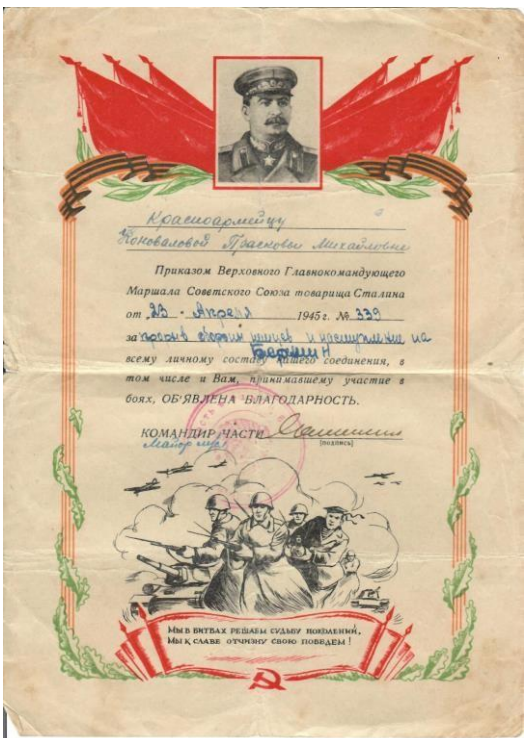 Красноармейцу
Коноваловой Прасковье Михайловне
Приказом Верховного Главнокомандующего
Маршала Советского Союза товарища Сталина
от 23 · Апреля 1945 г. № 339
за прорыв обороны немцев и наступление на
Берлин
всему личному составу нашего соединения, в
том числе и Вам, принимавшему участие в
боях, ОБ'ЯВЛЕНА БЛАГОДАРНОСТЬ.
КОМАНДИР ЧАСТИ
Майор м/с
(подпись)
МЫ В БИТВАХ РЕШАЕМ СУДЬБУ ПОКОЛЕНИЙ,
МЫ К СЛАВЕ ОТЧИЗНУ СВОЮ ПОВЕДЕМ!